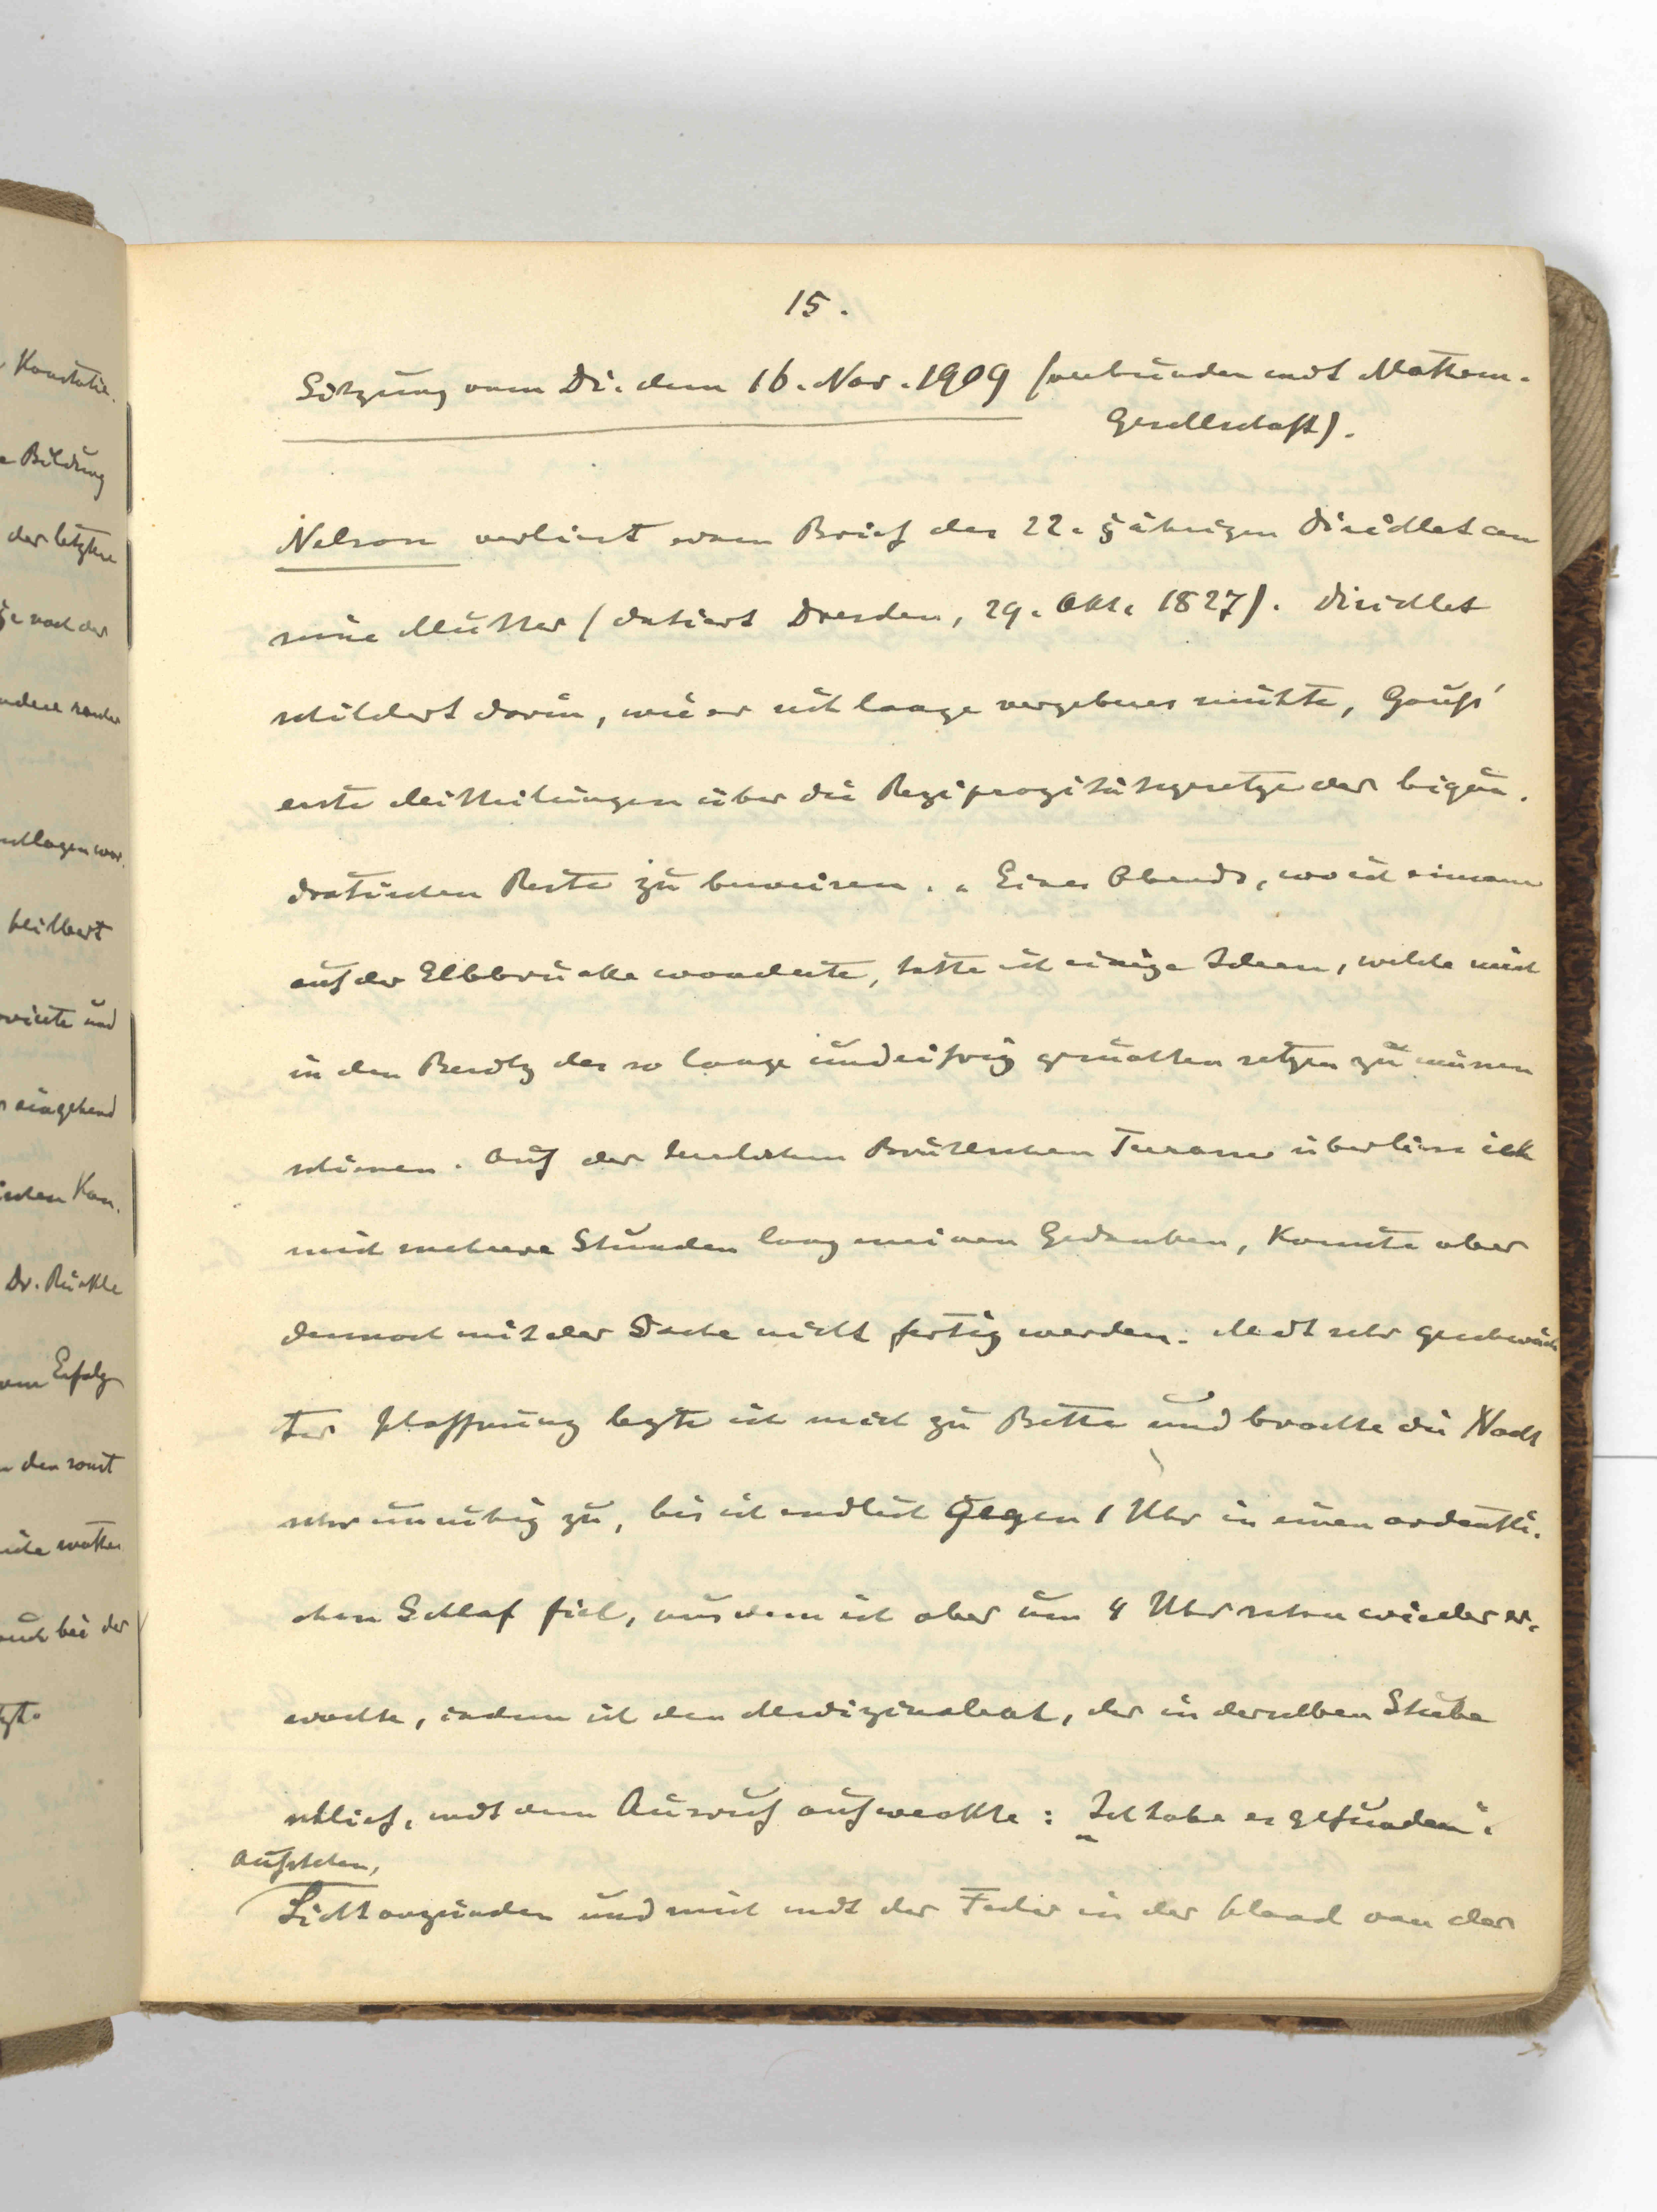 Konstatie.
Bildung
der letztere
nach der
andere sonder
schlagen wor.
Hilbert
und
eingehend
ischen Kon.
Dr. Rückle
vom Erfolg
den sonst
auch bei der
15.
Sitzung vom Di. dem 16. Nov. 1909 (verbunden mit Mathem.
Gesellschaft).
Nelson verliest einen Brief des 22-jährigen Dirichlet an
seine Mutter (datiert Dresden, 29. Okt. 1827). Dirichlet
schildert darin, wie er sich lange vergebens mühte, Gauß'
erste Mitteilungen über die Reziprozitätsgesetze der biqua-
dratischen Reste zu beweisen. „Eines Abends, wo ich einsam
auf der Elbbrücke wanderte, hatte ich einige Ideen, welche mich
in den Besitz des so lange und eifrig gesuchten setzen zu müssen
schienen. Auf der herrlichen Brühlschen Terasse überliess ich
mich mehrere Stunden lang meinen Gedanken, konnte aber
dennoch mit der Sache nicht fertig werden. Mit sehr geschwäch
ter Hoffnung legte ich mich zu Bette und brachte die Nacht
sehr unruhig zu, bis ich endlich gegen 1 Uhr in einen ordentli-
chen Schlaf fiel, aus dem ich aber um 4 Uhr schon wieder er-
wachte, indem ich den Medizinalrat, der in derselben Stube
schlief, mit dem Ausruf aufweckte: „Ich habe es gefunden".
Aufstehen,
Licht anzünden und mich mit der Feder in der Hand von der